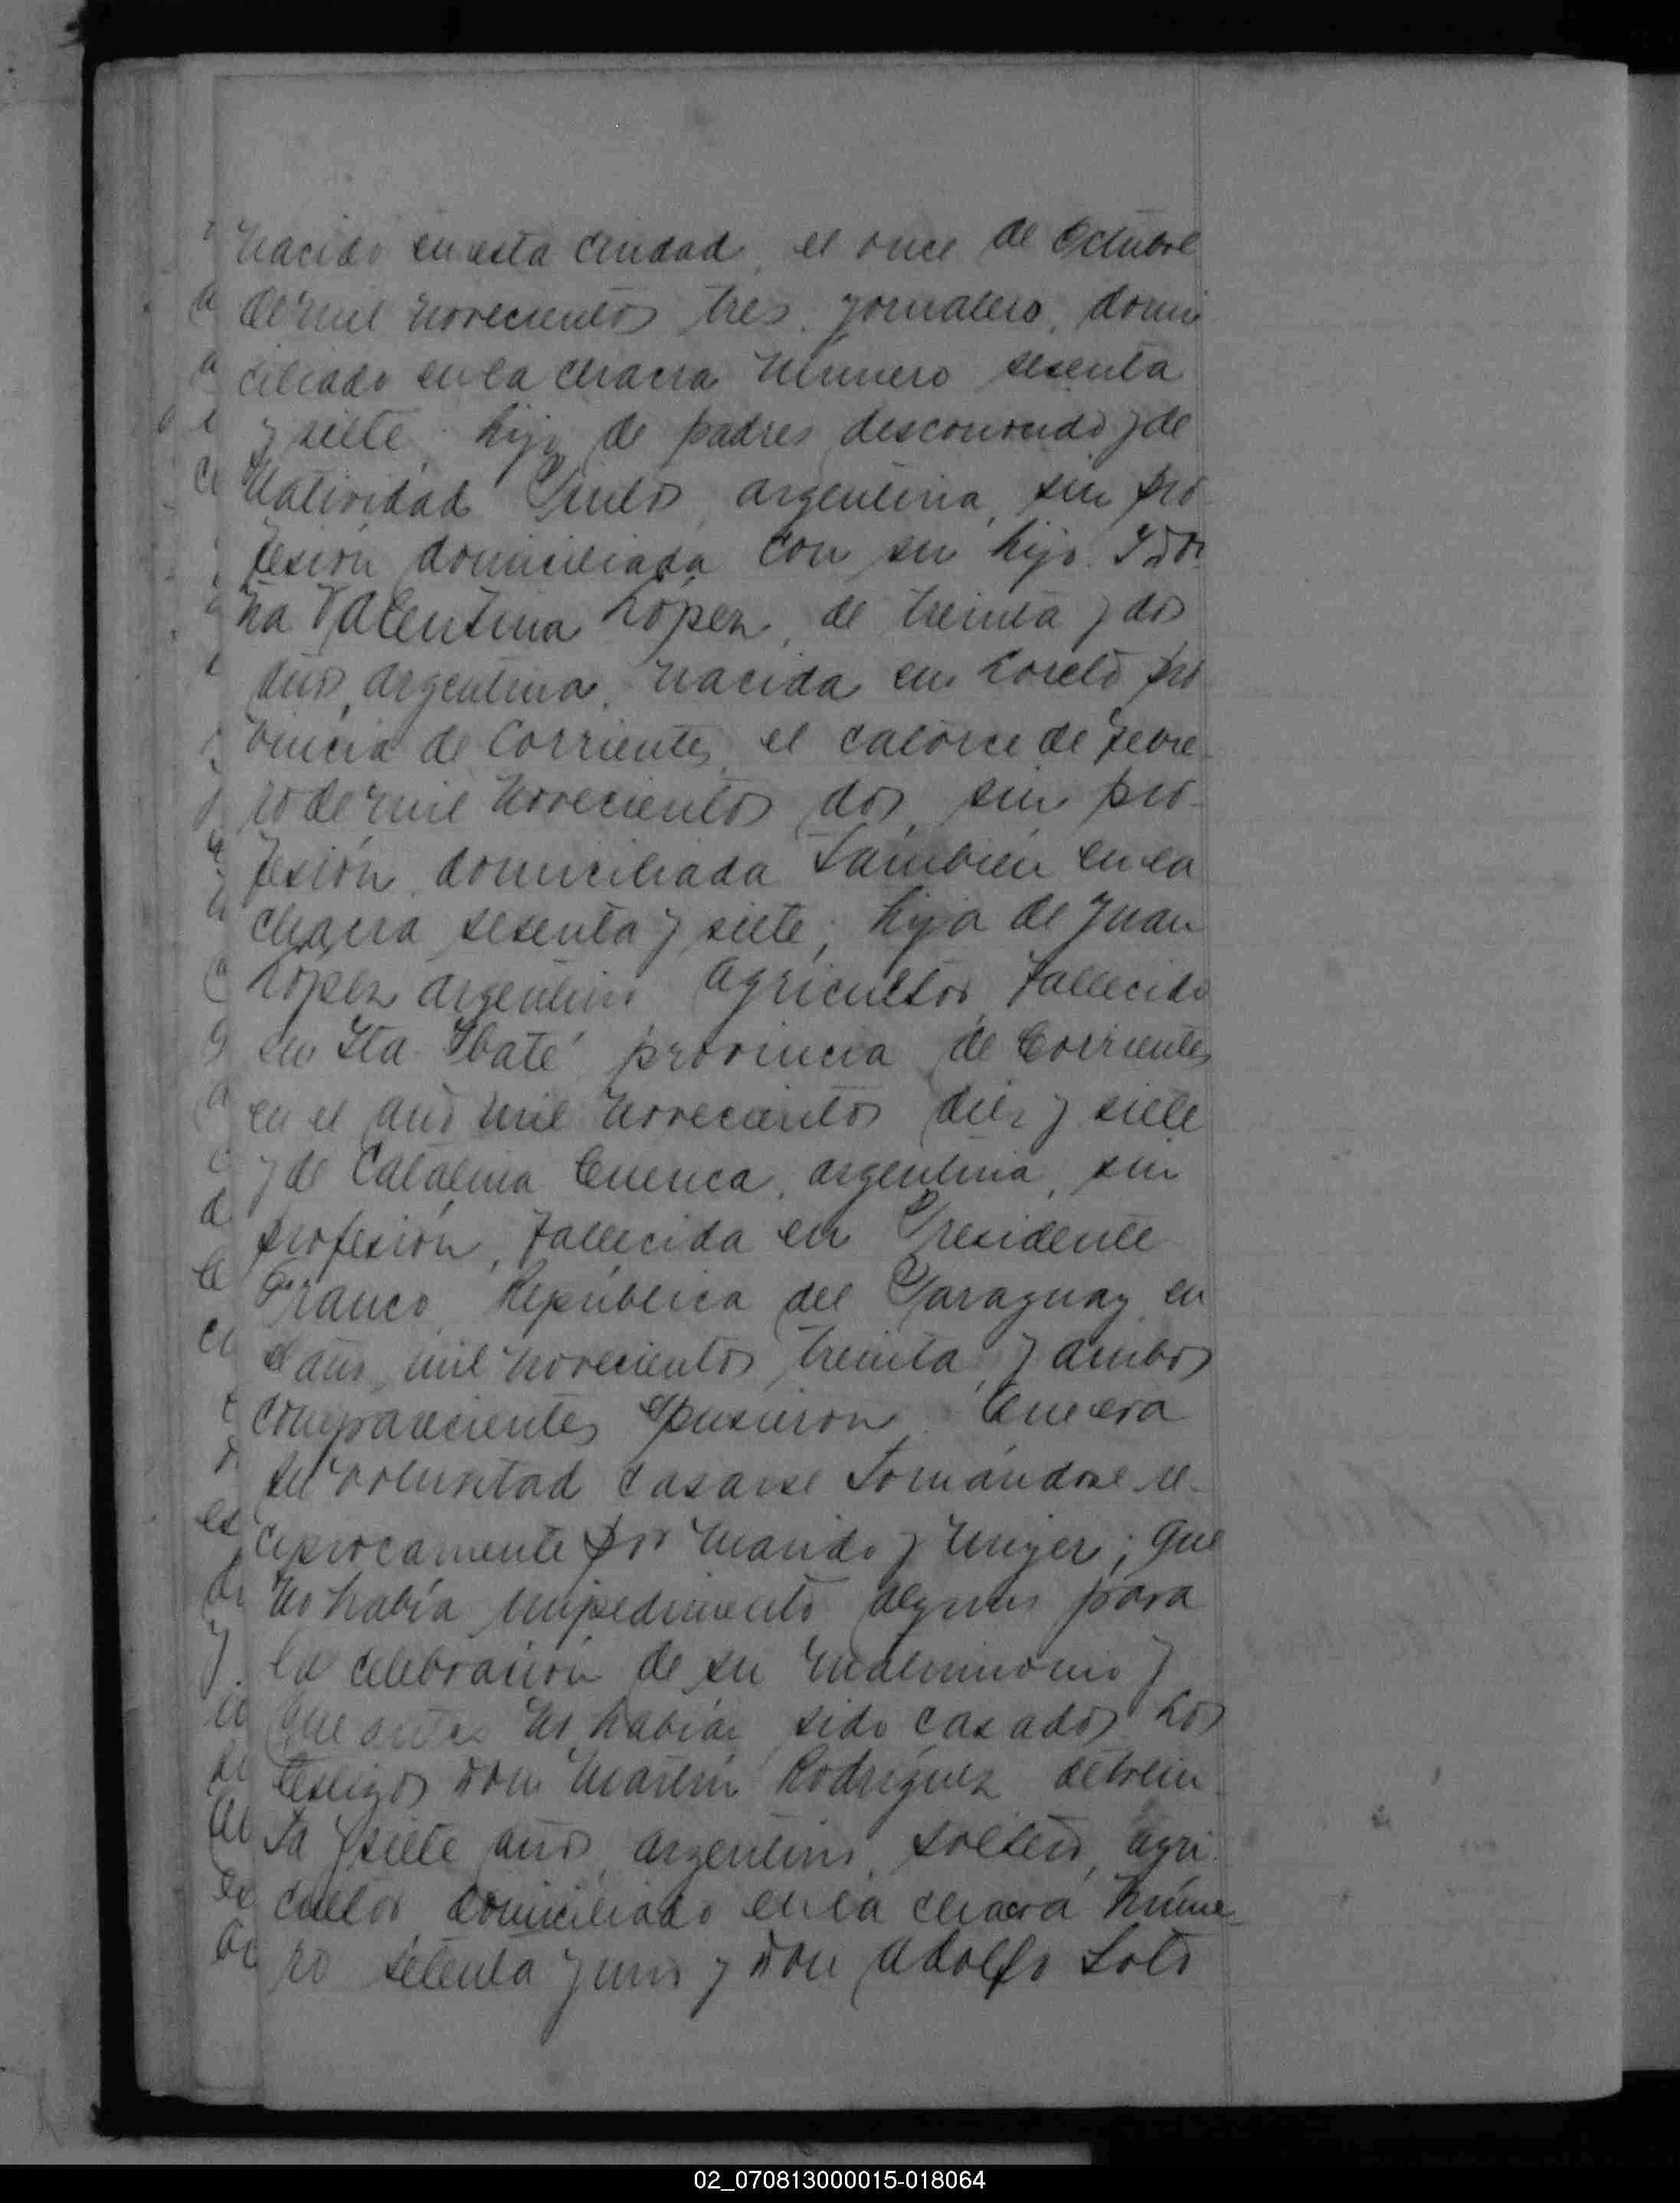 nacido en esta ciudad, el once de Octubre
de mil novecientos tres, jornalero, domi
ciliado en la chacra número sesenta
y siete, hijo de padres desconocido y de
Natividad Pinto, argentina, sin pro
fesión domiciliada con su hijo. Y do
ña Valentina López, de treinta y dos
años, argentina, nacida en Loreto pro
vincia de Corrientes, el catorce de Febre
ro de mil novecientos dos, sin pro-
fesión, domiciliada también en la
chacra sesenta y siete; hija de Juan
López argentino, agricultor, fallecido
en Ita-Ibaté provincia de Corrientes
en el año mil novecientos diez y siete
y de Catalina Cuenca, argentina, sin
profesión, fallecida en Presidente
Franco, República del Paraguay, en
el año mil novecientos treinta, y ambos
comparecientes expusieron: Que era
su voluntad casarse tomándose re-
ciprocamente por marido y mujer; que
no había impedimento alguno para
la celebración de su matrimonio y
que antes no habían sido casados. Los
testigos don Martín Rodríguez de trein
ta y siete años, argentino, soltero, agri-
cultor domiciliado en la chacra núme-
ro setenta y uno y don Adolfo Soto
02_070813000015-018064